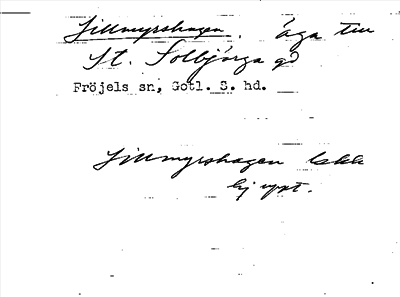 Lillmyrshagen. äga till
St. Solbjärga gd
Fröjels sn, Gotl. S. hd.
Lillmyrshagen
ej uppt.